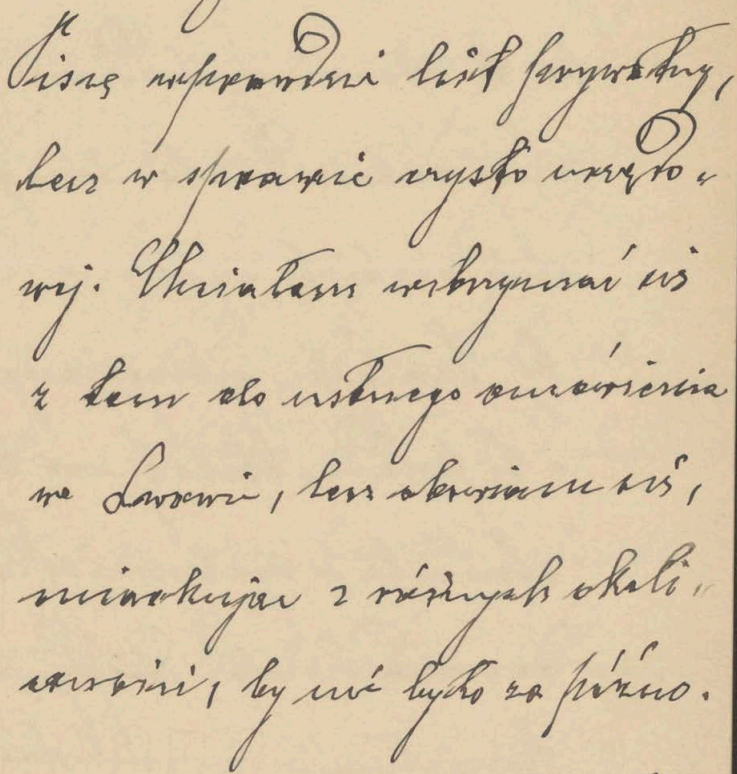 Piszę wprawdzie list prywatny,
lecz w sprawie czysto urzędo-
wej. Chciałem wstrzymać się
z tem do ustnego omówienia
we Lwowie, lecz obawiam się,
miarkując z różnych okoli-
czności, by nie było za późno.